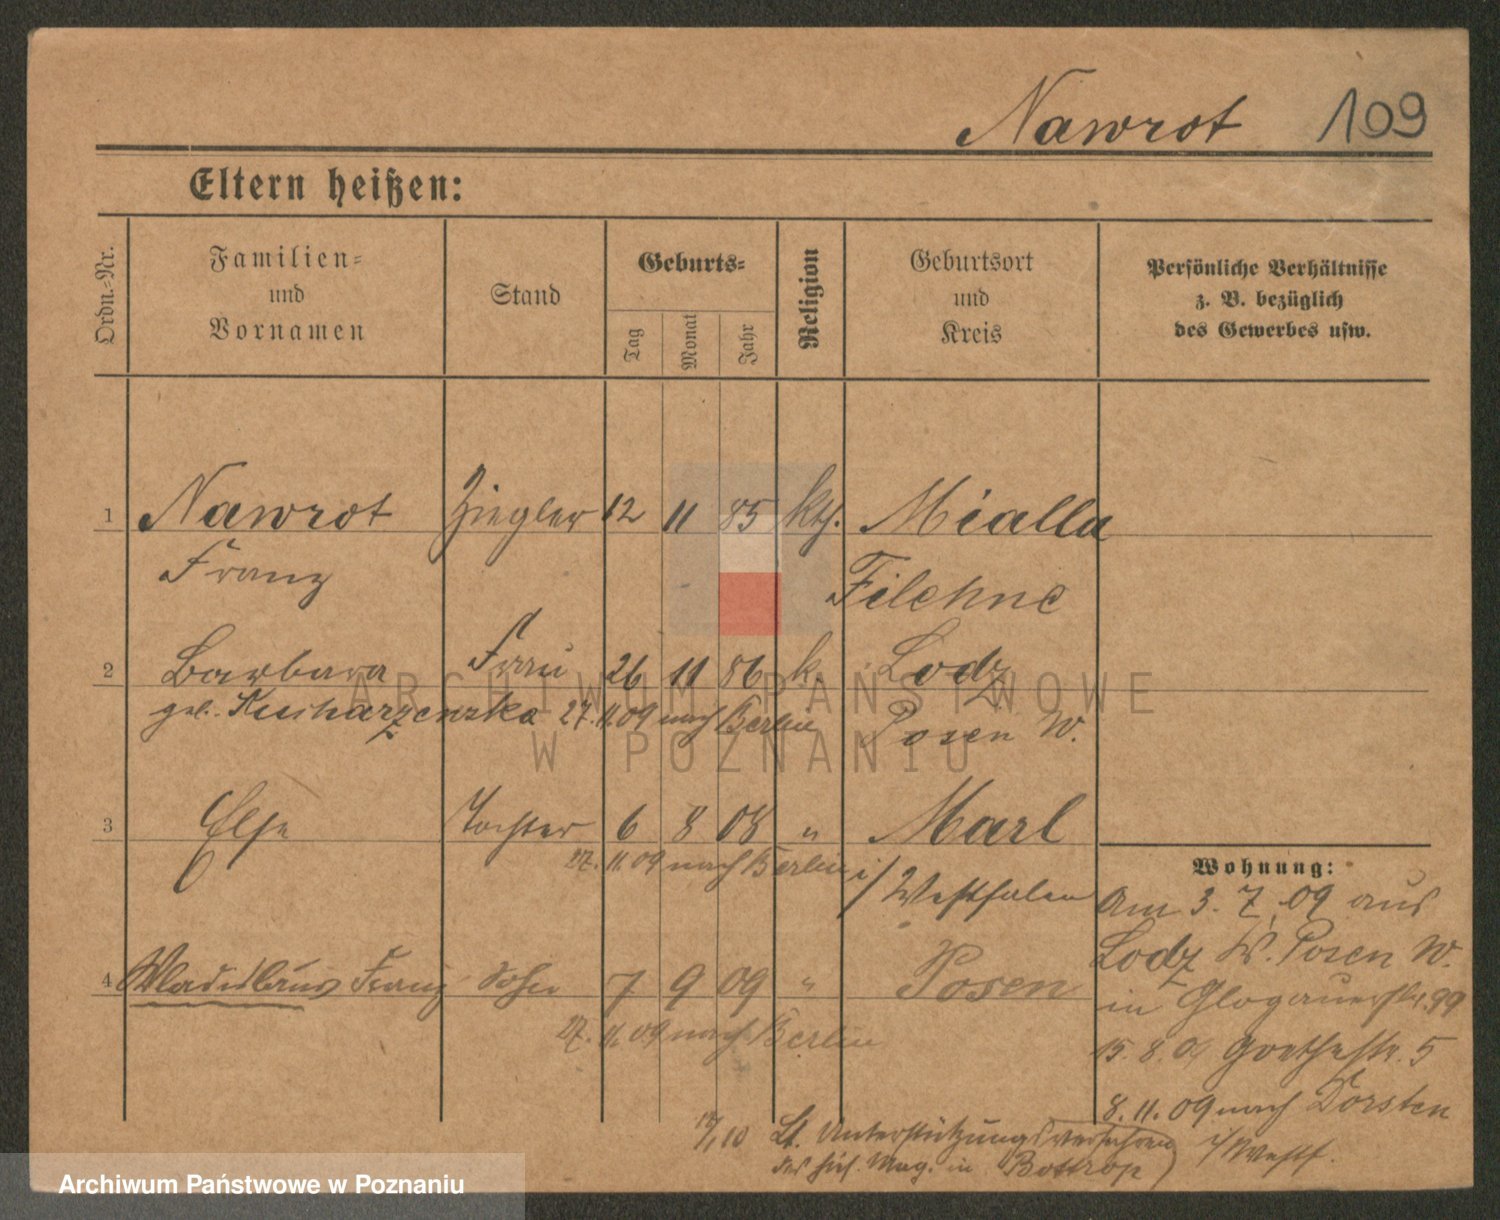 Nawrot 109
Eltern heißen:
Ordn.=Nr.
Familien= und Vornamen
Stand
Geburts=
Tag
Monat
Jahr
Religion
Geburtsort und Kreis
Persönliche Verhältnisse
z. B. bezüglich
des Gewerbes usw.
1 Nawrot Ziegler 12 11 85 kth. Mialla
Franz Filehne
2 Barbara Frau 26 11 86 k. Lodz
geb. 27. 11. 09 nach Berlin Posen W.
3 Else Tochter 6 8 08 " Marl
27. 11. 09 nach Berlin i/Westfalen
4 Wladislaus Franz Sohn 7 9 09 " Posen
27. 11. 09 nach Berlin
Wohnung:
Am 3. 7. 09 aus
Lodz K. Posen W.
in Glogauerstr. 99
15. 8. 09 Goethestr. 5
8. 11. 09 nach Dorsten
i/Westf.
Lt. Unterstützungsverfahren
des hies. Mag. in Bottrop
ARCHIWUM PAŃSTWOWE
W POZNANIU
Archiwum Państwowe w Poznaniu